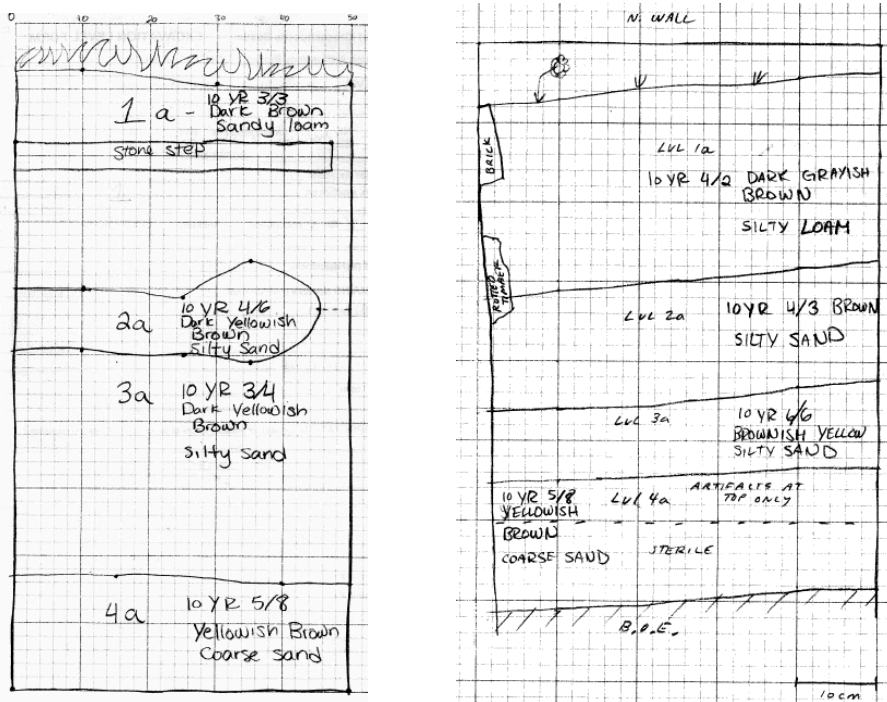 0 10 20 30 40 50
1a - 10 YR 3/3
Dark Brown
Sandy loam
Stone step
2a
10 YR 4/6
Dark Yellowish
Brown
Silty Sand
3a
10 YR 3/4
Dark Yellowish
Brown
Silty sand
4a
10 YR 5/8
Yellowish Brown
Coarse sand
N. WALL
BRICK
LVL 1a
10 YR 4/2 DARK GRAYISH
BROWN
SILTY LOAM
ROTTED
TIMBER
LVL 2a
10YR 4/3 BROWN
SILTY SAND
LVL 3a
10 YR 6/6
BROWNISH YELLOW
SILTY SAND
10 YR 5/8
YELLOWISH
BROWN
COARSE SAND
LVL 4a
ARTIFACTS AT
TOP ONLY
STERILE
B.O.E.
10cm